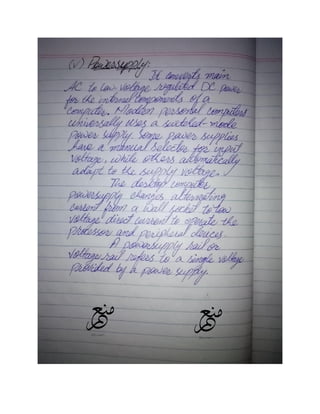 (v) Powersupply:
It converts main
AC to low voltage regulated DC power
for the internal components of a
computer. Modern personal computers
universally uses a switched-mode
power supply. Some power supplies
have a manual selector for input
voltage, while others automatically
adapt to the supply voltage.
The desktop computer
powersupply changes alternating
current from a wall socket to low
voltage direct current to operate the
processor and peripheral devices.
A powersupply rail or
voltage rail refers to a single voltage
provided by a power supply.